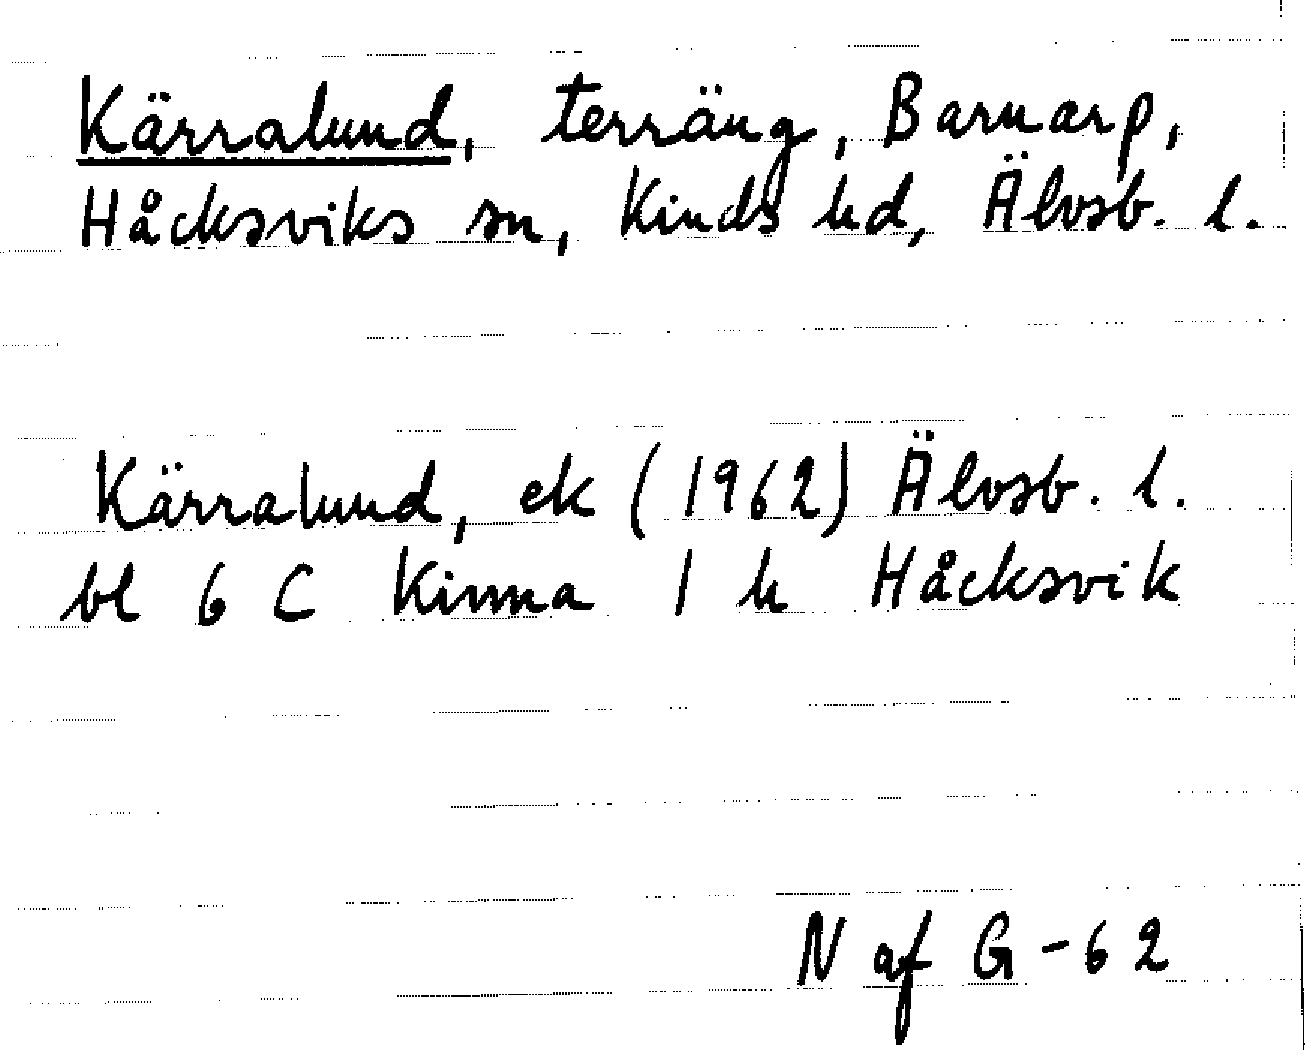 Kärralund, terräng, Barnarp,
Håcksviks sn, Kinds hd, Älvsb. l.
Kärralund, ek (1962) Älvsb. l.
bl 6 C Kinna 1 h Håcksvik
N af G -62